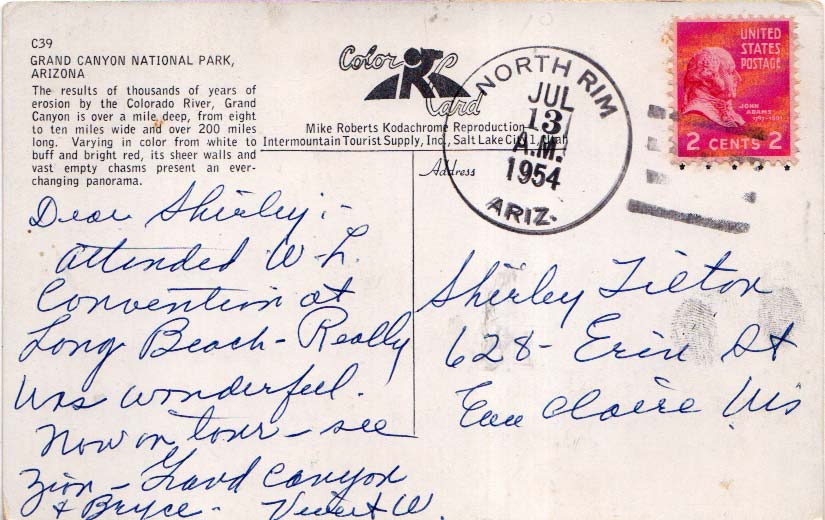 C39
GRAND CANYON NATIONAL PARK,
ARIZONA
The results of thousands of years of
erosion by the Colorado River, Grand
Canyon is over a mile deep, from eight
to ten miles wide and over 200 miles
long. Varying in color from white to
buff and bright red, its sheer walls and
vast empty chasms present an ever-
changing panorama.
Color
Card
Mike Roberts Kodachrome Reproduction
Intermountain Tourist Supply, Inc., Salt Lake City, Utah
Address
NORTH RIM
JUL
13
A.M.
1954
ARIZ.
UNITED
STATES
POSTAGE
JOHN
ADAMS
1797-1801
2 CENTS 2
Dear Shirley:-
Attended W-L.
Convention at
Long Beach - Really
was wonderful.
Now on tour - see
Zion - Grand Canyon
+ Bryce -
W.
Shirley Tilton
628 - Erin St
Eau Claire Wis